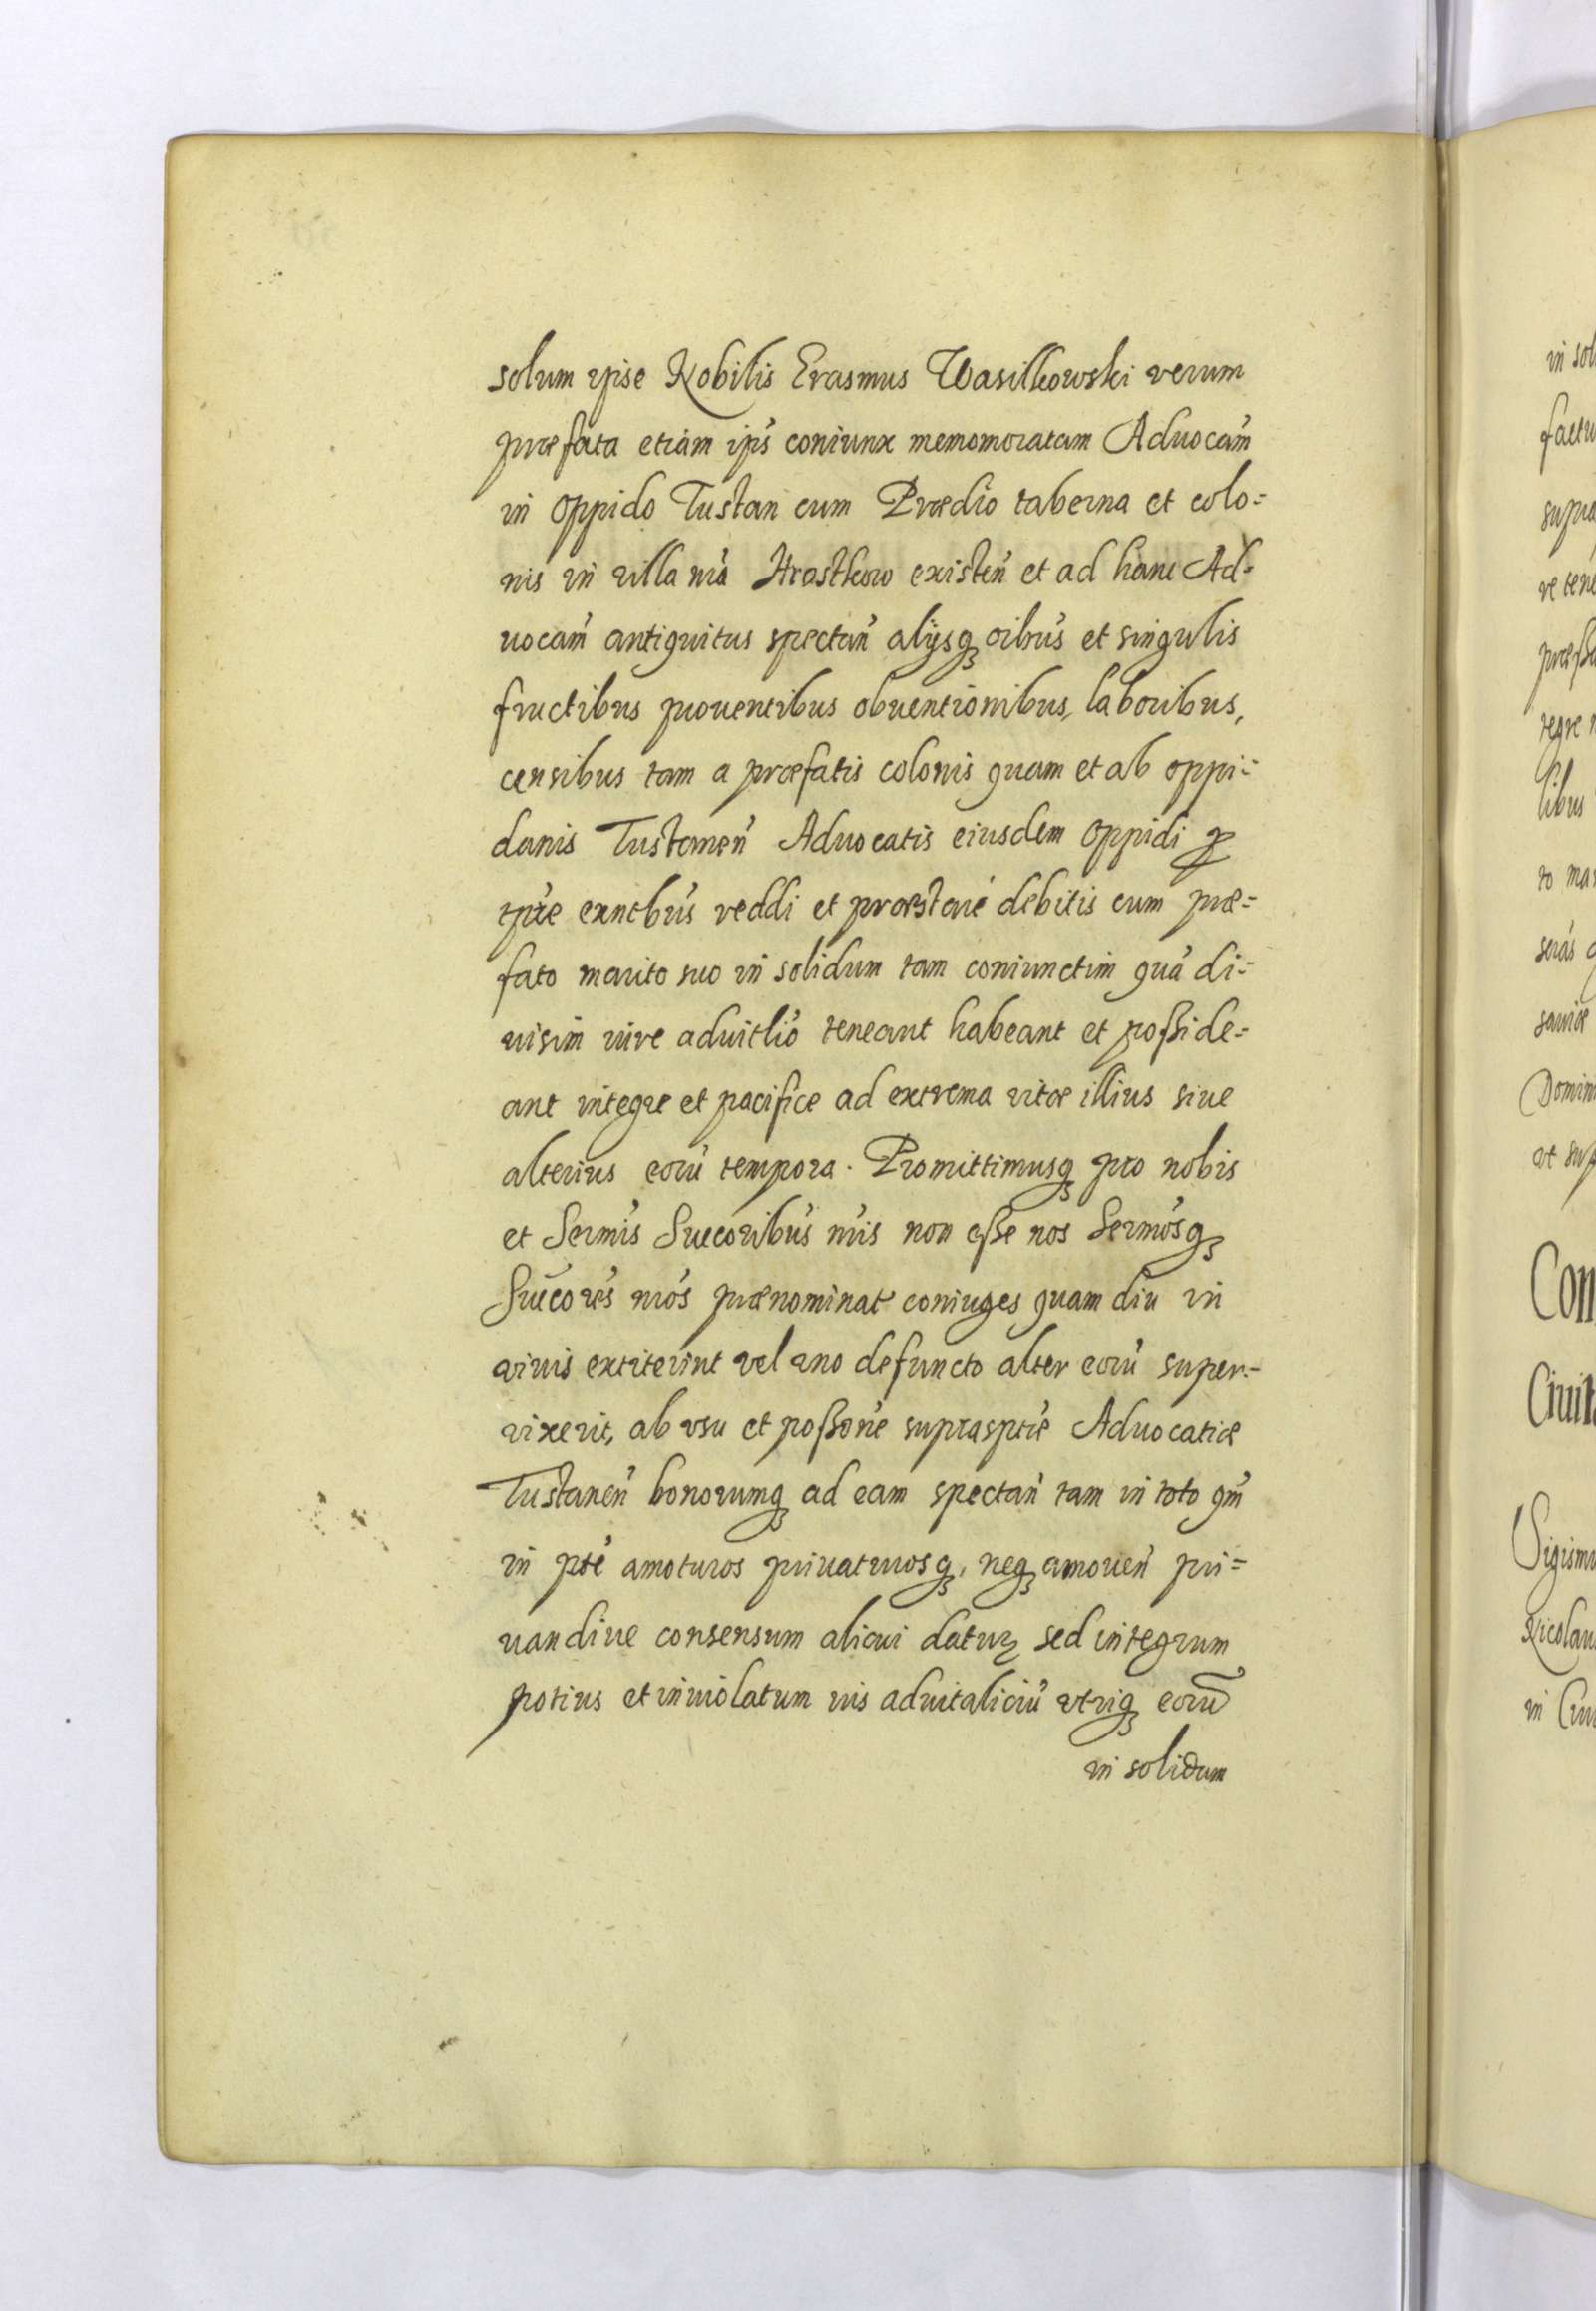 solum ipse Nobilis Erasmus Wasilkowski verum
præfata etiam ip̃s coniunx memomoratam Aduocam̃
in oppido Tustan cum Prædio taberna et colo=
nis in villa nr̃a Hrostkow existeñ et ad hanc Ad=
uocam̃ antiquitus spectañ alijsq₃ oibus̃ et singulis
fructibus prouentibus obuentionibus, laboribus,
censibus tam a præfatis colonis quam et ab oppi=
danis Tustaneñ Aduocatis eiusdem oppidi ꝓ
tp̃re exntbus̃ reddi et præstari debitis cum præ=
fato marito suo in solidum tam coniunctim quã di=
uisim iure aduitlio̓ teneant habeant et poßide=
ant integre et pacifice ad extrema vitæ illius siue
alterius eorũ tempora. Promittimusq₃ pro nobis
et Sermis̃ Succoribus̃ nr̃is non eße nos Sermosq̃₃
Succores̃ nr̃os prænominat coniuges quam diu in
viuis extiterint vel vno defuncto alter eorũ super=
vixerit, ab vsu et poßone̓ suprasptæ̃ Aduocatiæ
Tustaneñ bonorumq₃ ad eam spectañ tam in toto qm̃
in pte̓ amoturos priuaturosq₃, neq₃ amoueñ pri=
uandiue consensum alicui datur₃ sed integrum
potius et inuiolatum ius aduitaliciũ vtriq₃ eorũ
in solidum
in sol
factu
supra
re tene
præß
tegre
libus
to mar
seras̃
sariæ
Domin
vt sup
Con
Ciuit
Sigism
Nicolau
in Ciui